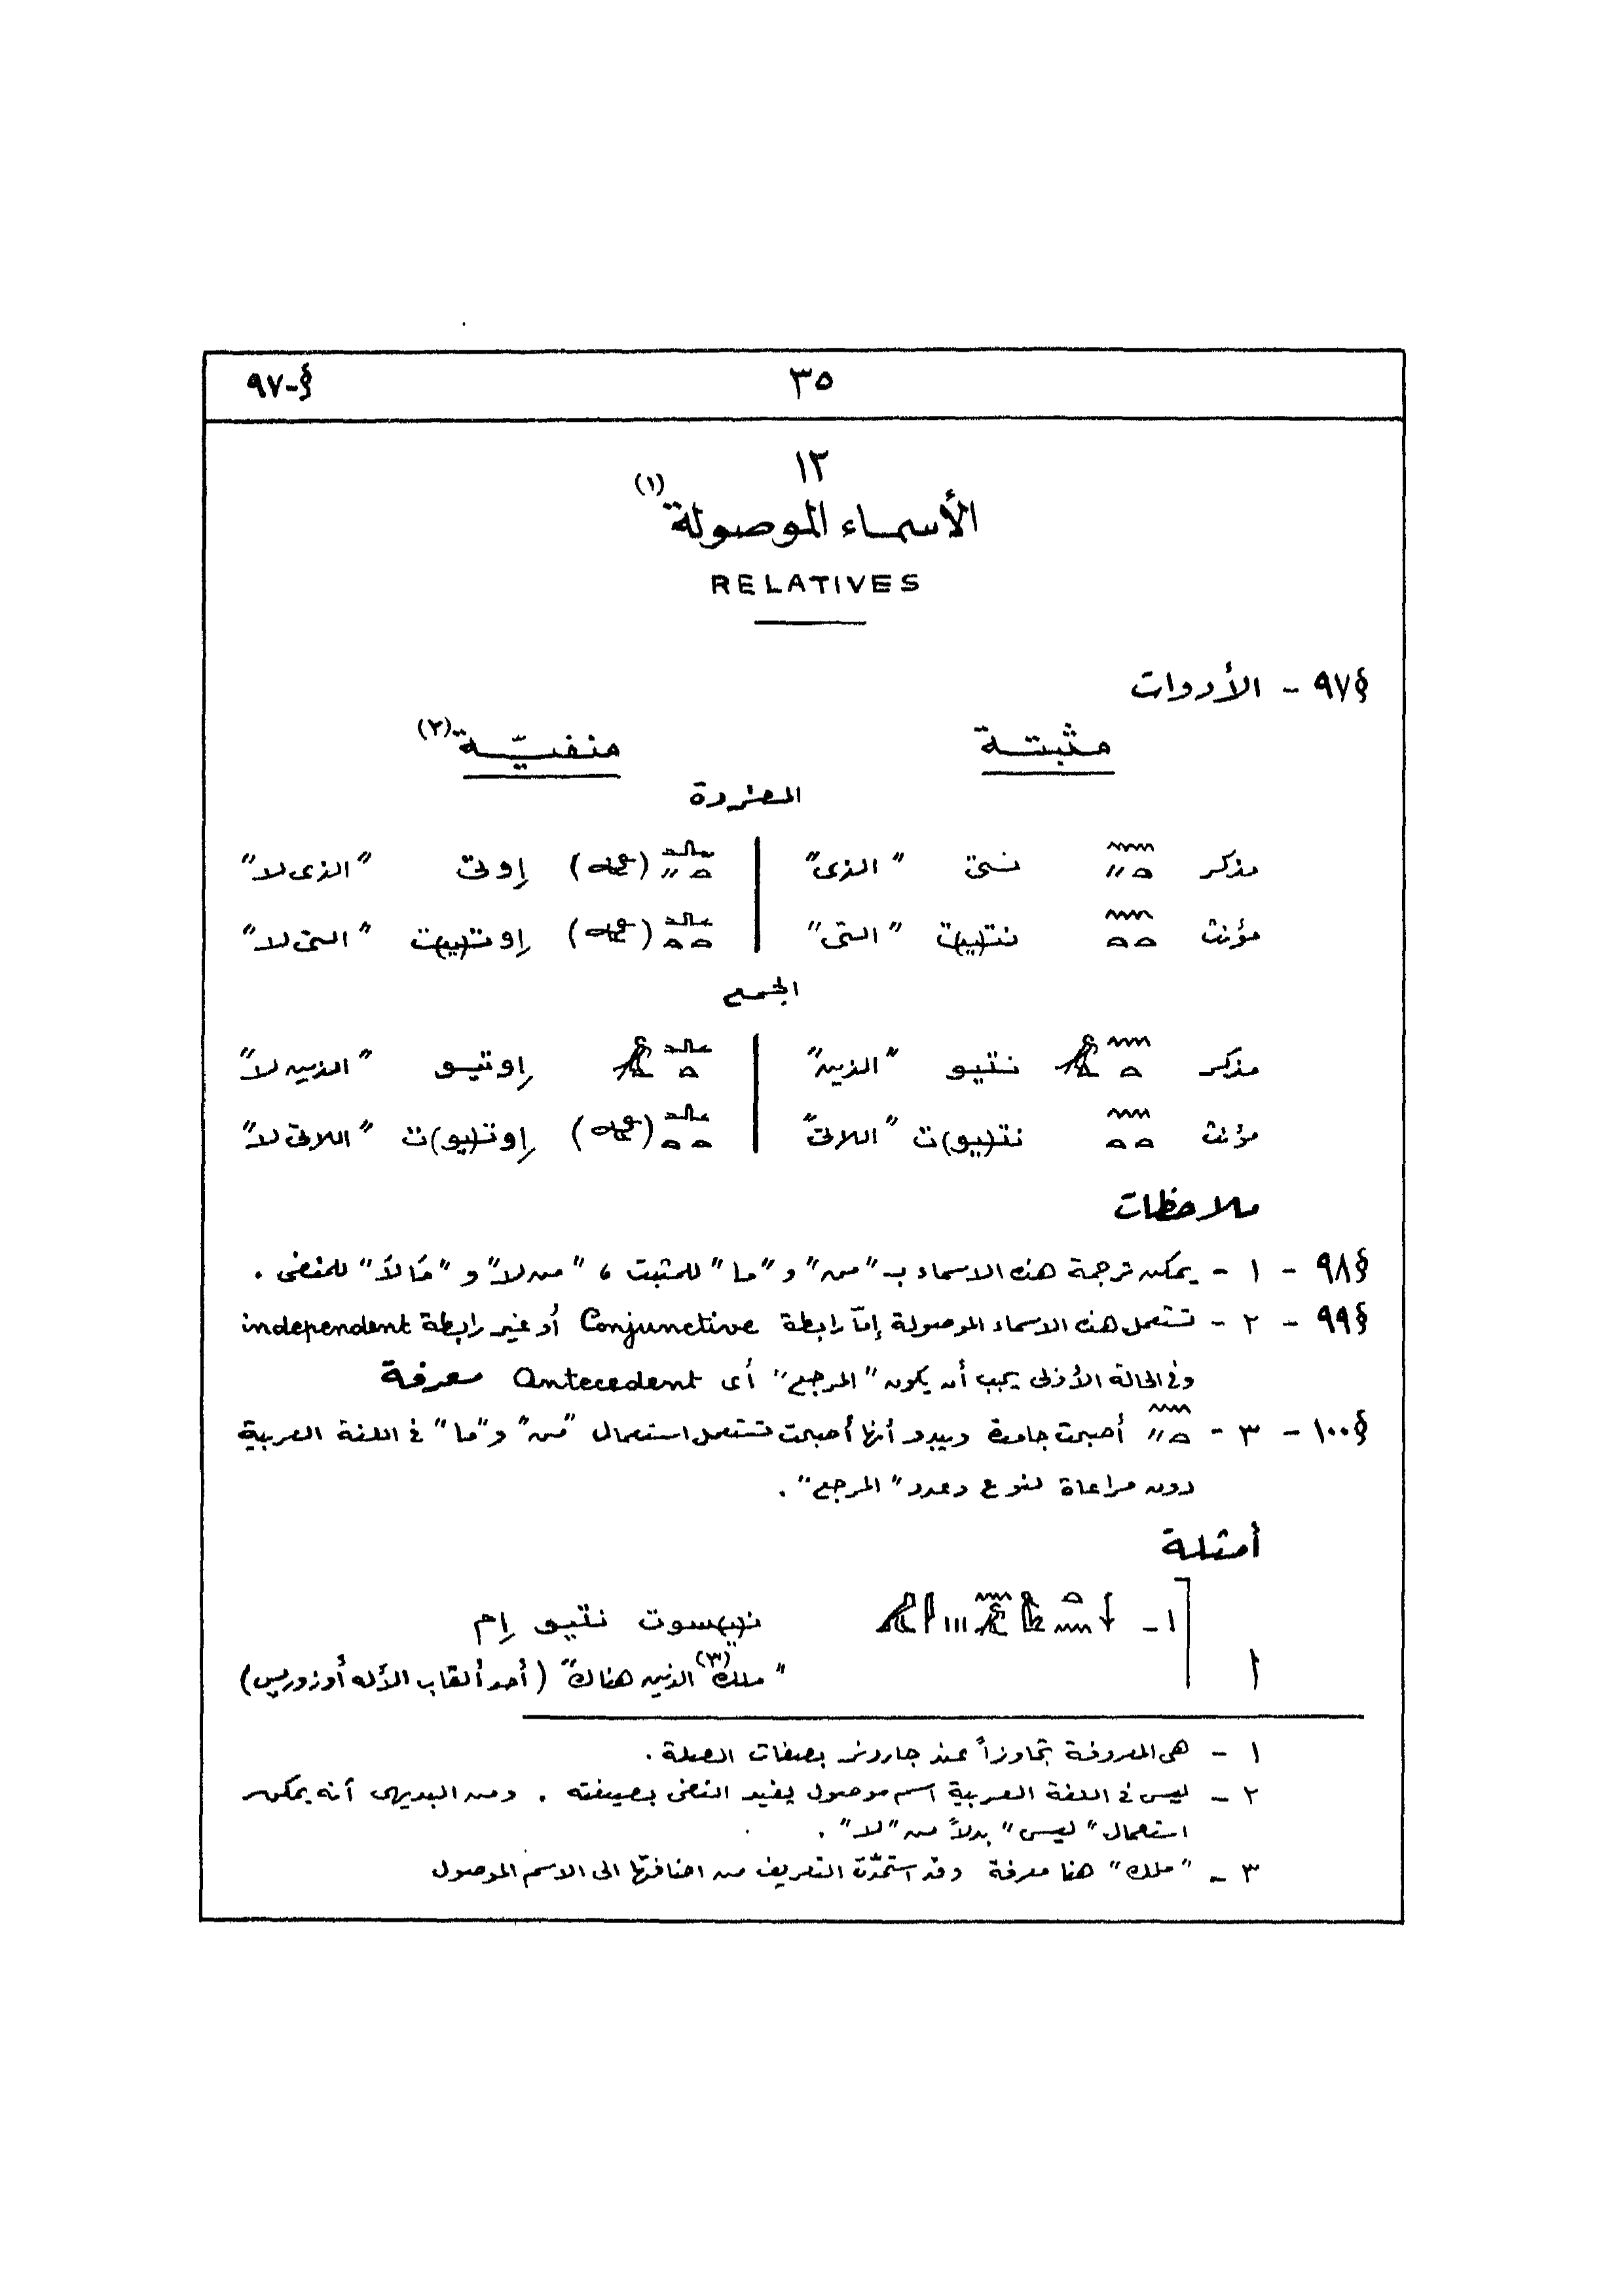 §-٩٧ ٣٥
١٢
الأسماء الموصولة (١)
RELATIVES
§٩٧ - الأدوات
مثبتة منفيّة (٢)
المفردة
مذكر نتى "الذى" إوتى "الذى لا"
مؤنث نت(يـ)ت "التى" إوت(يـ)ت "التى لا"
الجمع
مذكر نتيو "الذين" إوتيو "الذين لا"
مؤنث نت(يو)ت "اللاتى" إوت(يو)ت "اللاتى لا"
ملاحظات
§٩٨ - ١ - يمكن ترجمة هذه الاسماء بـ "من" و "ما" للمثبت ، "من لا" و "مَا لاَ" للمنفى .
§٩٩ - ٢ - تستعمل هذه الاسماء الموصولة إمّا رابطة Conjunctive أو غير رابطة independent
وفى الحالة الأولى يجب أن يكون "المرجع" أى Antecedent معرفة
§١٠٠ - ٣ - أصبحت جامدة ويبدو أنها أصبحت تستعمل استعمال "من" و "ما" فى اللغة العربية
دون مراعاة لنوع وعدد "المرجع" .
أمثلة
١ - ن(يـ)سوت نتيو إم
أ "ملك (٣) الذين هناك" (أحد ألقاب الأله أوزوريس)
١ - هى المعروفة تجاوزاً عند جاردنر بصفات الصلة .
٢ - ليس فى اللغة العربية اسم موصول يفيد النفى بصيغته . ومن البديهى أنه يمكن
استعمال "ليس" بدلاً من "لا" .
٣ - "ملك" هنا معرفة وقد استمدّت التعريف من اضافتها الى الاسم الموصول